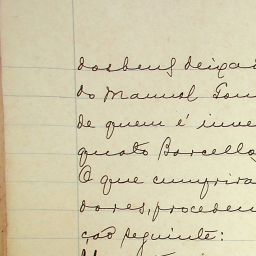 dos bens deixad
do Manuel Gon
de quem é inve
quato Barcello
O que cumprira
dores, proceden
ção seguinte: